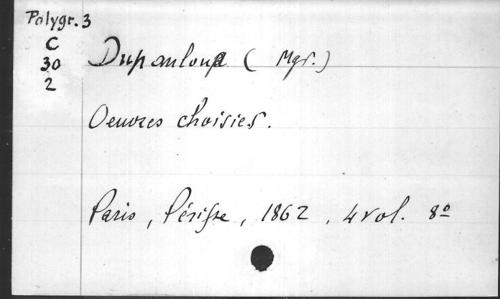 Polygr. 3
C
30
2
Dupanloup (Mgr.)
Oeuvres choisies.
Paris, Périsse, 1862, 4 vol. 8º